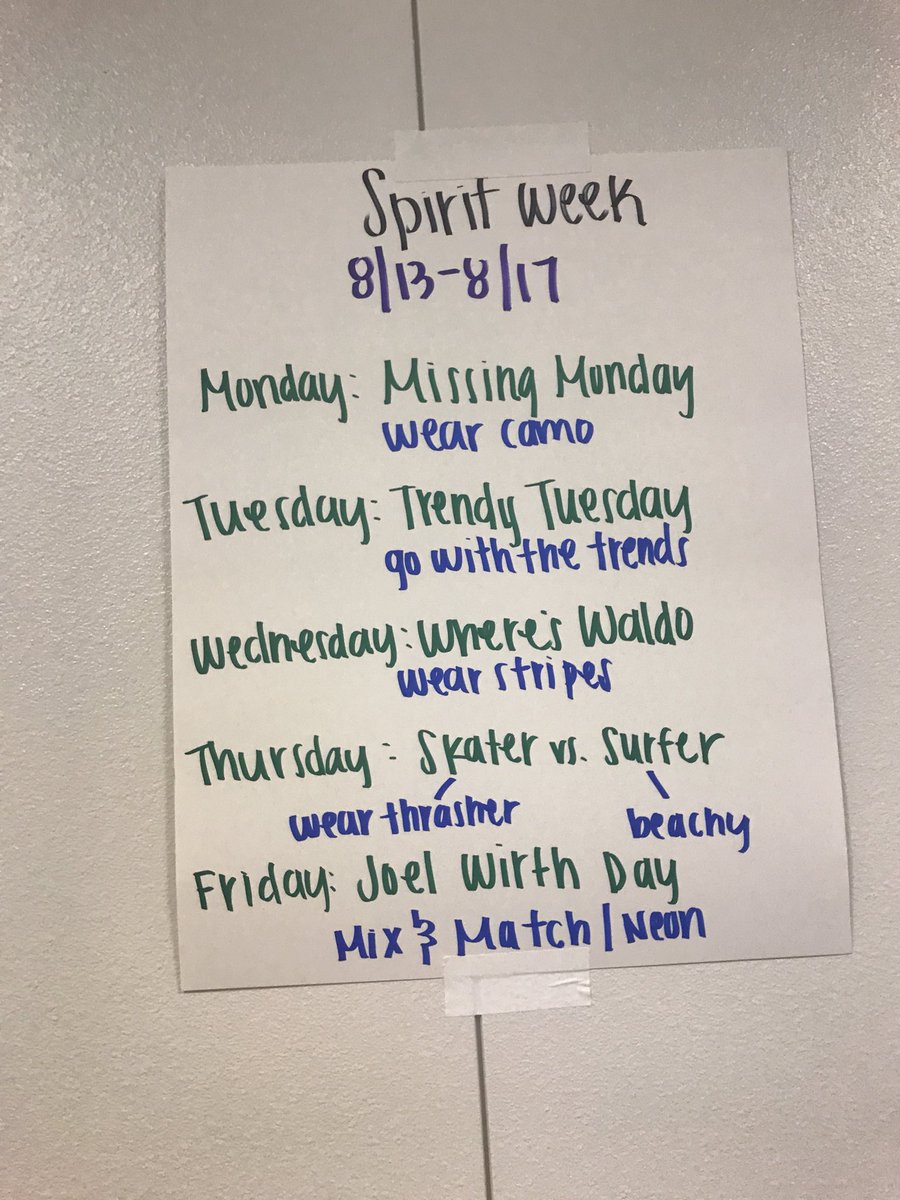 Spirit Week
8/13-8/17
Monday: Missing Monday
wear camo
Tuesday: Trendy Tuesday
go with the trends
Wednesday: Where's Waldo
wear stripes
Thursday: Skater vs. Surfer
wear thrasher beachy
Friday: Joel Wirth Day
Mix & Match / Neon